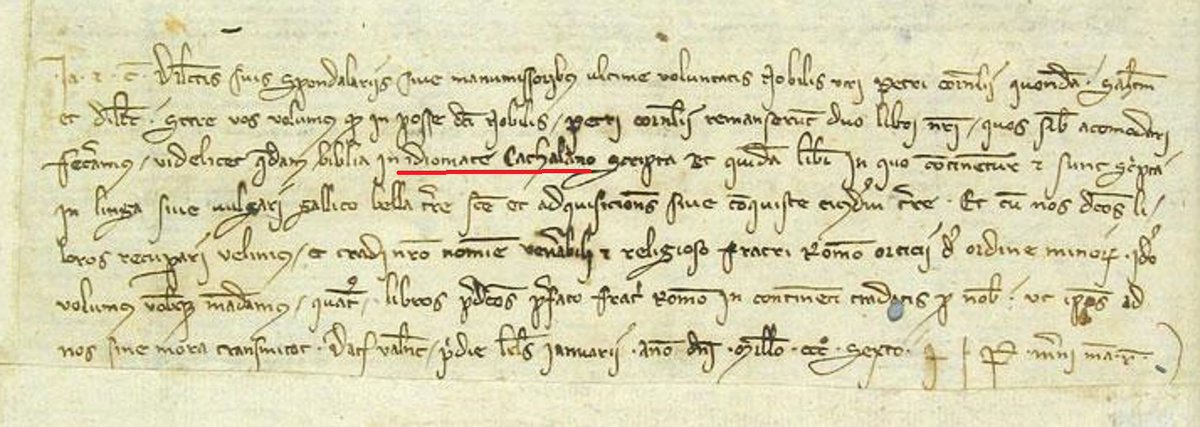 Ja. R. C. Dilcīs suis Spondalariis sive manumissoribus ultime voluntatis Nobilis viri petri cornelii quondā. Salt̄m
et dilc̄. Scire vos volumus q̄ in posse dc̄i Nobilis, petri cornelii remanserunt duo libri nr̄i, quos sibi acomodari
feceramus, videlicet q̄dam biblia in idiomate Cathalano scripta Et quidā libr̄ in quo continetur et sunt Sc̄pta
in linga sive vulgari gallico bella tr̄re sc̄e et adquisicions sive conquiste eiusdem tr̄re. Et cū nos dc̄os li/
bros recuperari velimus, et tradi nr̄o nomine venerabili et religioso fratri Romeo orticii de ordine minorum. ido
volumus vobisq̄ mādamus, quat9. libros p̄dc̄os p̄fato frat̄ Romeo in continenti tradatis p nob̄. ut ip̄os ad
nos sine mora transmitat. Dat̄ Valn̄c, p̄die kl̄s Januarii. año dn̄i. Millo. ccc. Sexto.